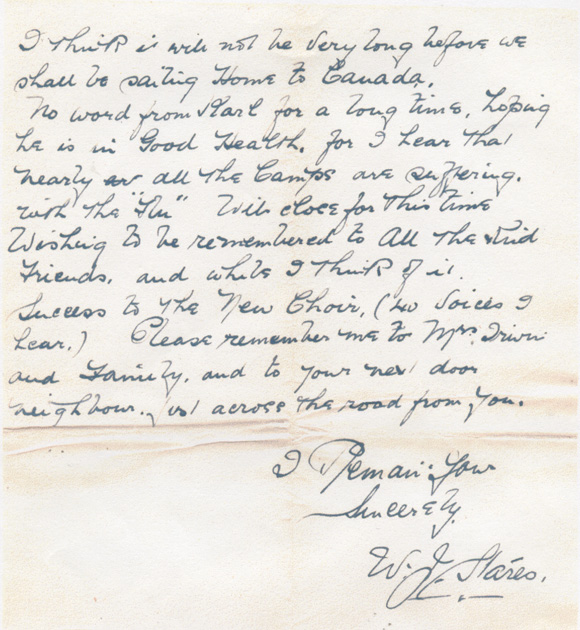 I think it will not be very long before we
shall be sailing Home to Canada.
No word from Karl for a long time, hoping
he is in Good Health, for I hear that
nearly all the Camps are suffering.
with the "Flu" Will close for this time
Wishing to be remembered to All the Kind
Friends, and while I think of it.
Success to the New Choir, (40 Voices I
hear.) Please remember me to Mrs. Irwin
and Family, and to your next door
neighbour. just across the road from you.
I Remain Your
Sincerely
W. J. Stares.